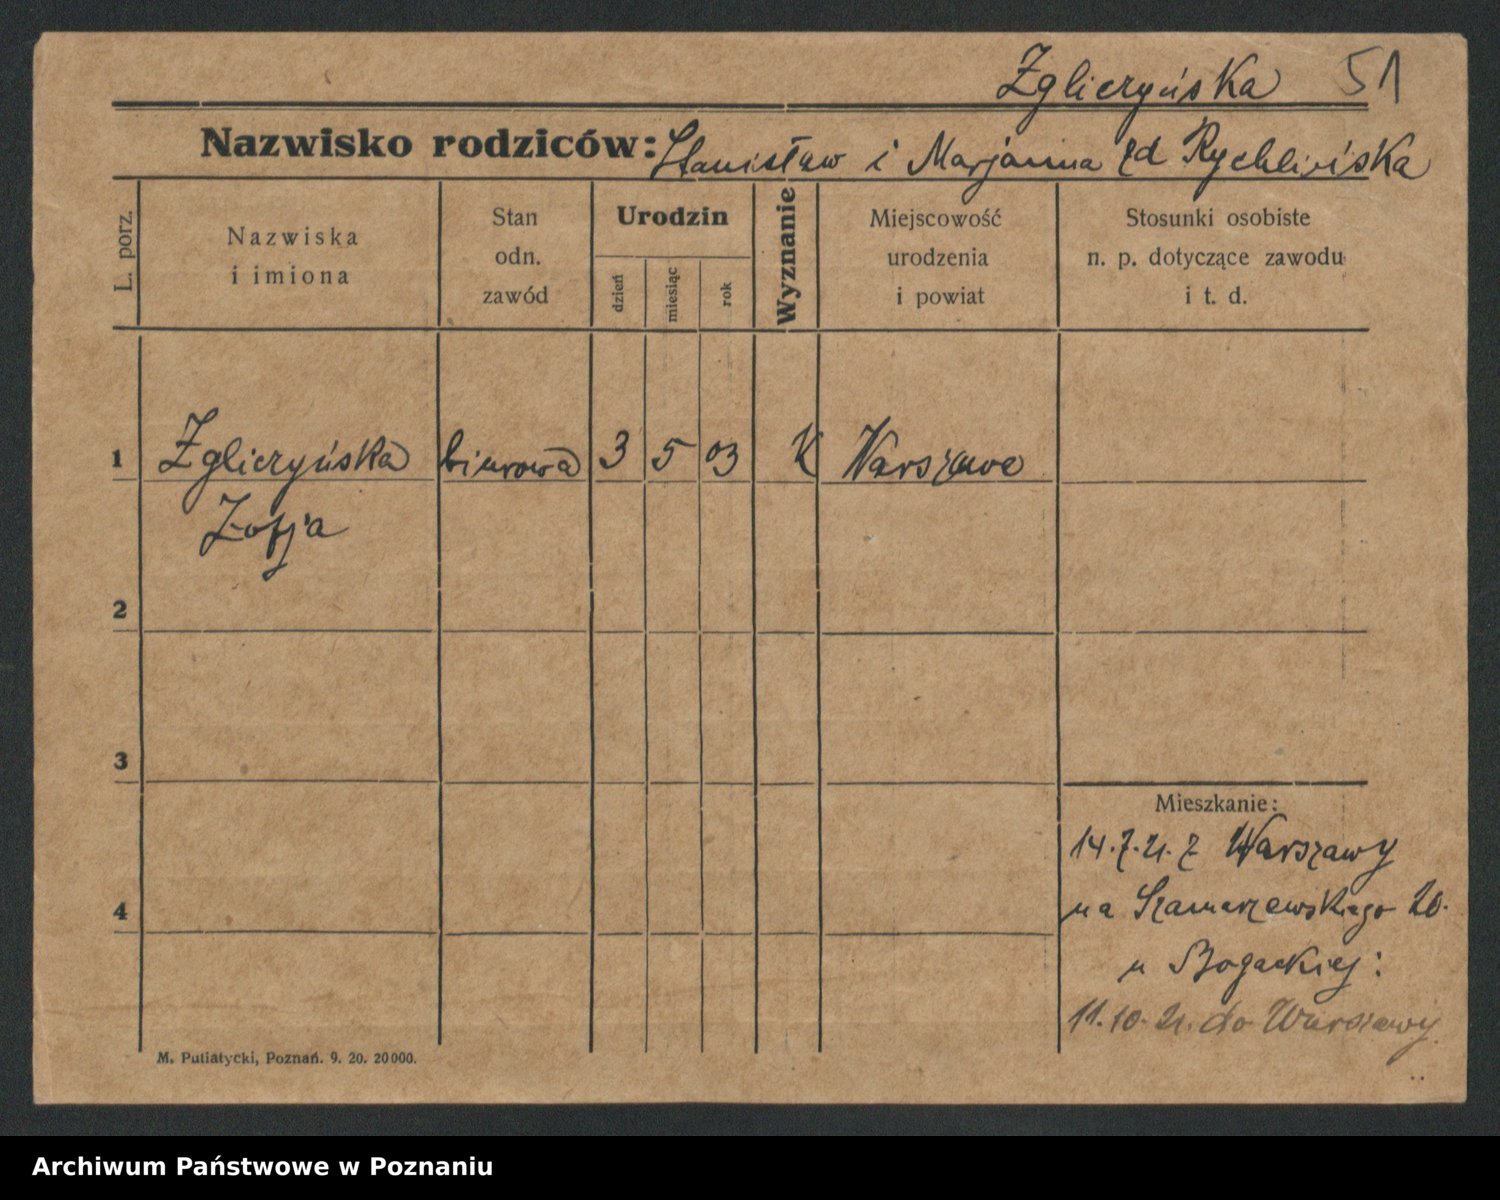 Zgliczyńska 51
Nazwisko rodziców: Stanisław i Marjanna zd Rychlińska
L. porz.
Nazwiska
i imiona
Stan
odn.
zawód
Urodzin
dzień
miesiąc
rok
Wyznanie
Miejscowość
urodzenia
i powiat
Stosunki osobiste
n. p. dotyczące zawodu
i t. d.
1 Zgliczyńska biurowa 3 5 03 K Warszawa
Zofja
2
3
4
Mieszkanie:
14.7.21. z Warszawy
na Szamarzewskiego 20.
u Bogackiej:
11.10.21. do Warszawy.
M. Putiatycki, Poznań. 9. 20. 20000.
Archiwum Państwowe w Poznaniu